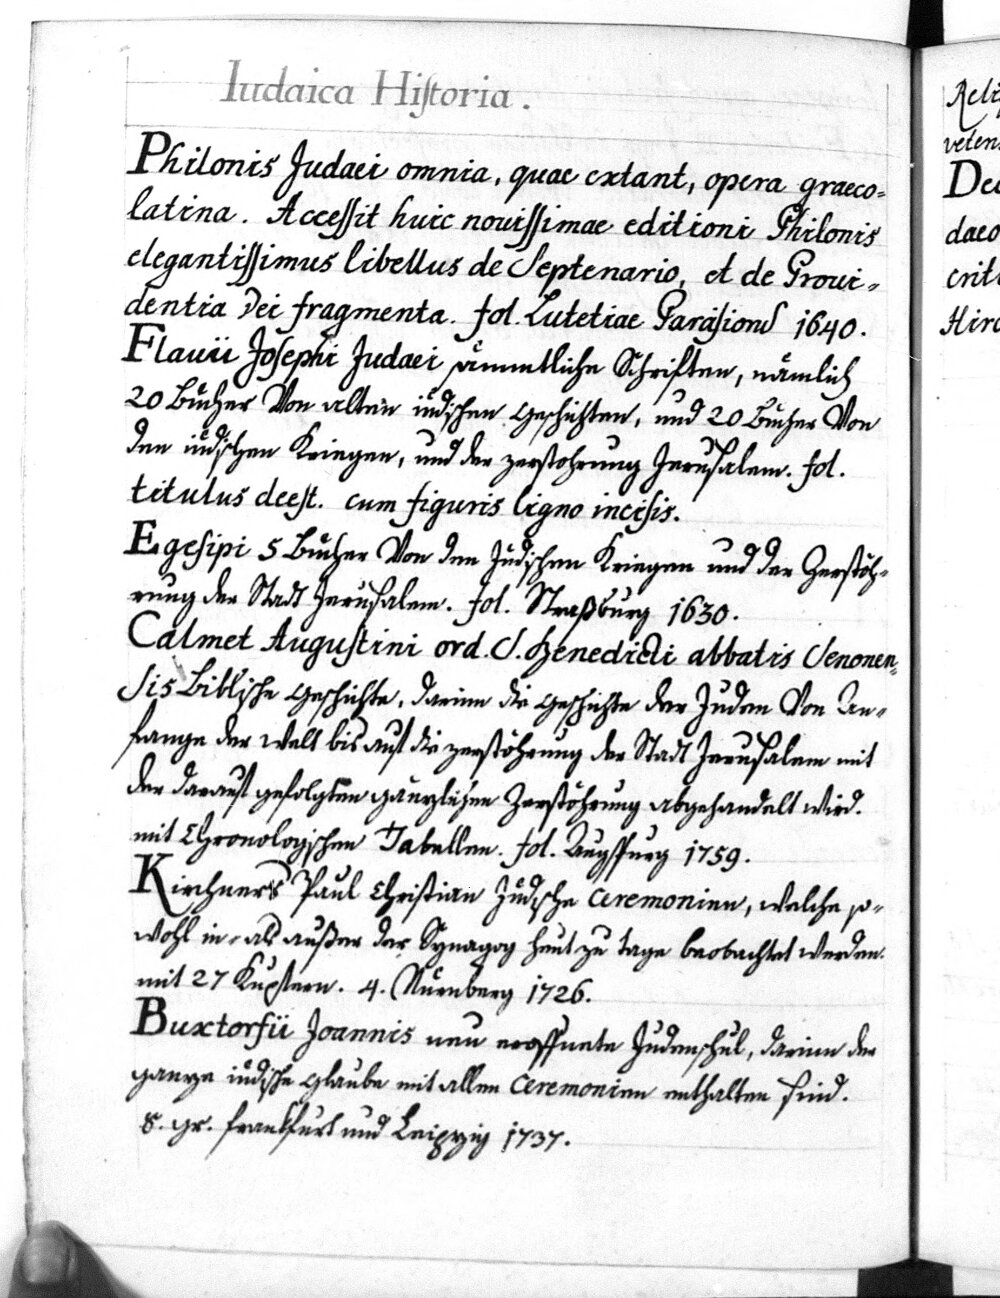 Iudaica Historia.
Philonis Judaei omnia, quae extant, opera graeco-
latina. Accessit huic novissimae editioni Philonis
elegantissimus libellus de Septenario, et de Provi-
dentia Dei fragmenta. fol. Lutetiae Parisiorū 1640.
Flavii Josephi Judaei sämmtliche Schriften, nämlich
20 Bücher Von alten jüdischen geschichten, und 20 Bücher Von
den jüdischen Kriegen, und der zerstohrung Jerusalem. fol.
titulus deest. cum figuris ligno incisis.
Egesipi 5 Bücher Von den Jüdischen Kriegen und der Zerstöh-
rung der Stadt Jerusalem. fol. Straßburg 1630.
Calmet Augustini ord. S. Benedicti abbatis Senonen-
sis Biblische geschichte, darinn die geschichte der Juden Von An-
fange der Welt bis auf die zerstöhrung der Stadt Jerusalem mit
der darauf gefolgten gänzlichen Zerstöhrung abgehandelt wird.
mit Chronologischen Tabellen. fol. Augspurg 1759.
Kirchners Paul Christian Jüdische Ceremonien, welche so-
wohl in- als außer der Synagog heut zu tage beobachtet werden.
mit 27 Kupfern. 4. Nürnberg 1726.
Buxtorfii Joannis neu eröffnete Judenschul, darinn der
ganze jüdische glaube mit allen Ceremonien enthalten sind.
8. gr. frankfurt und Leipzig 1737.
veten
daeo
crit
Hiro